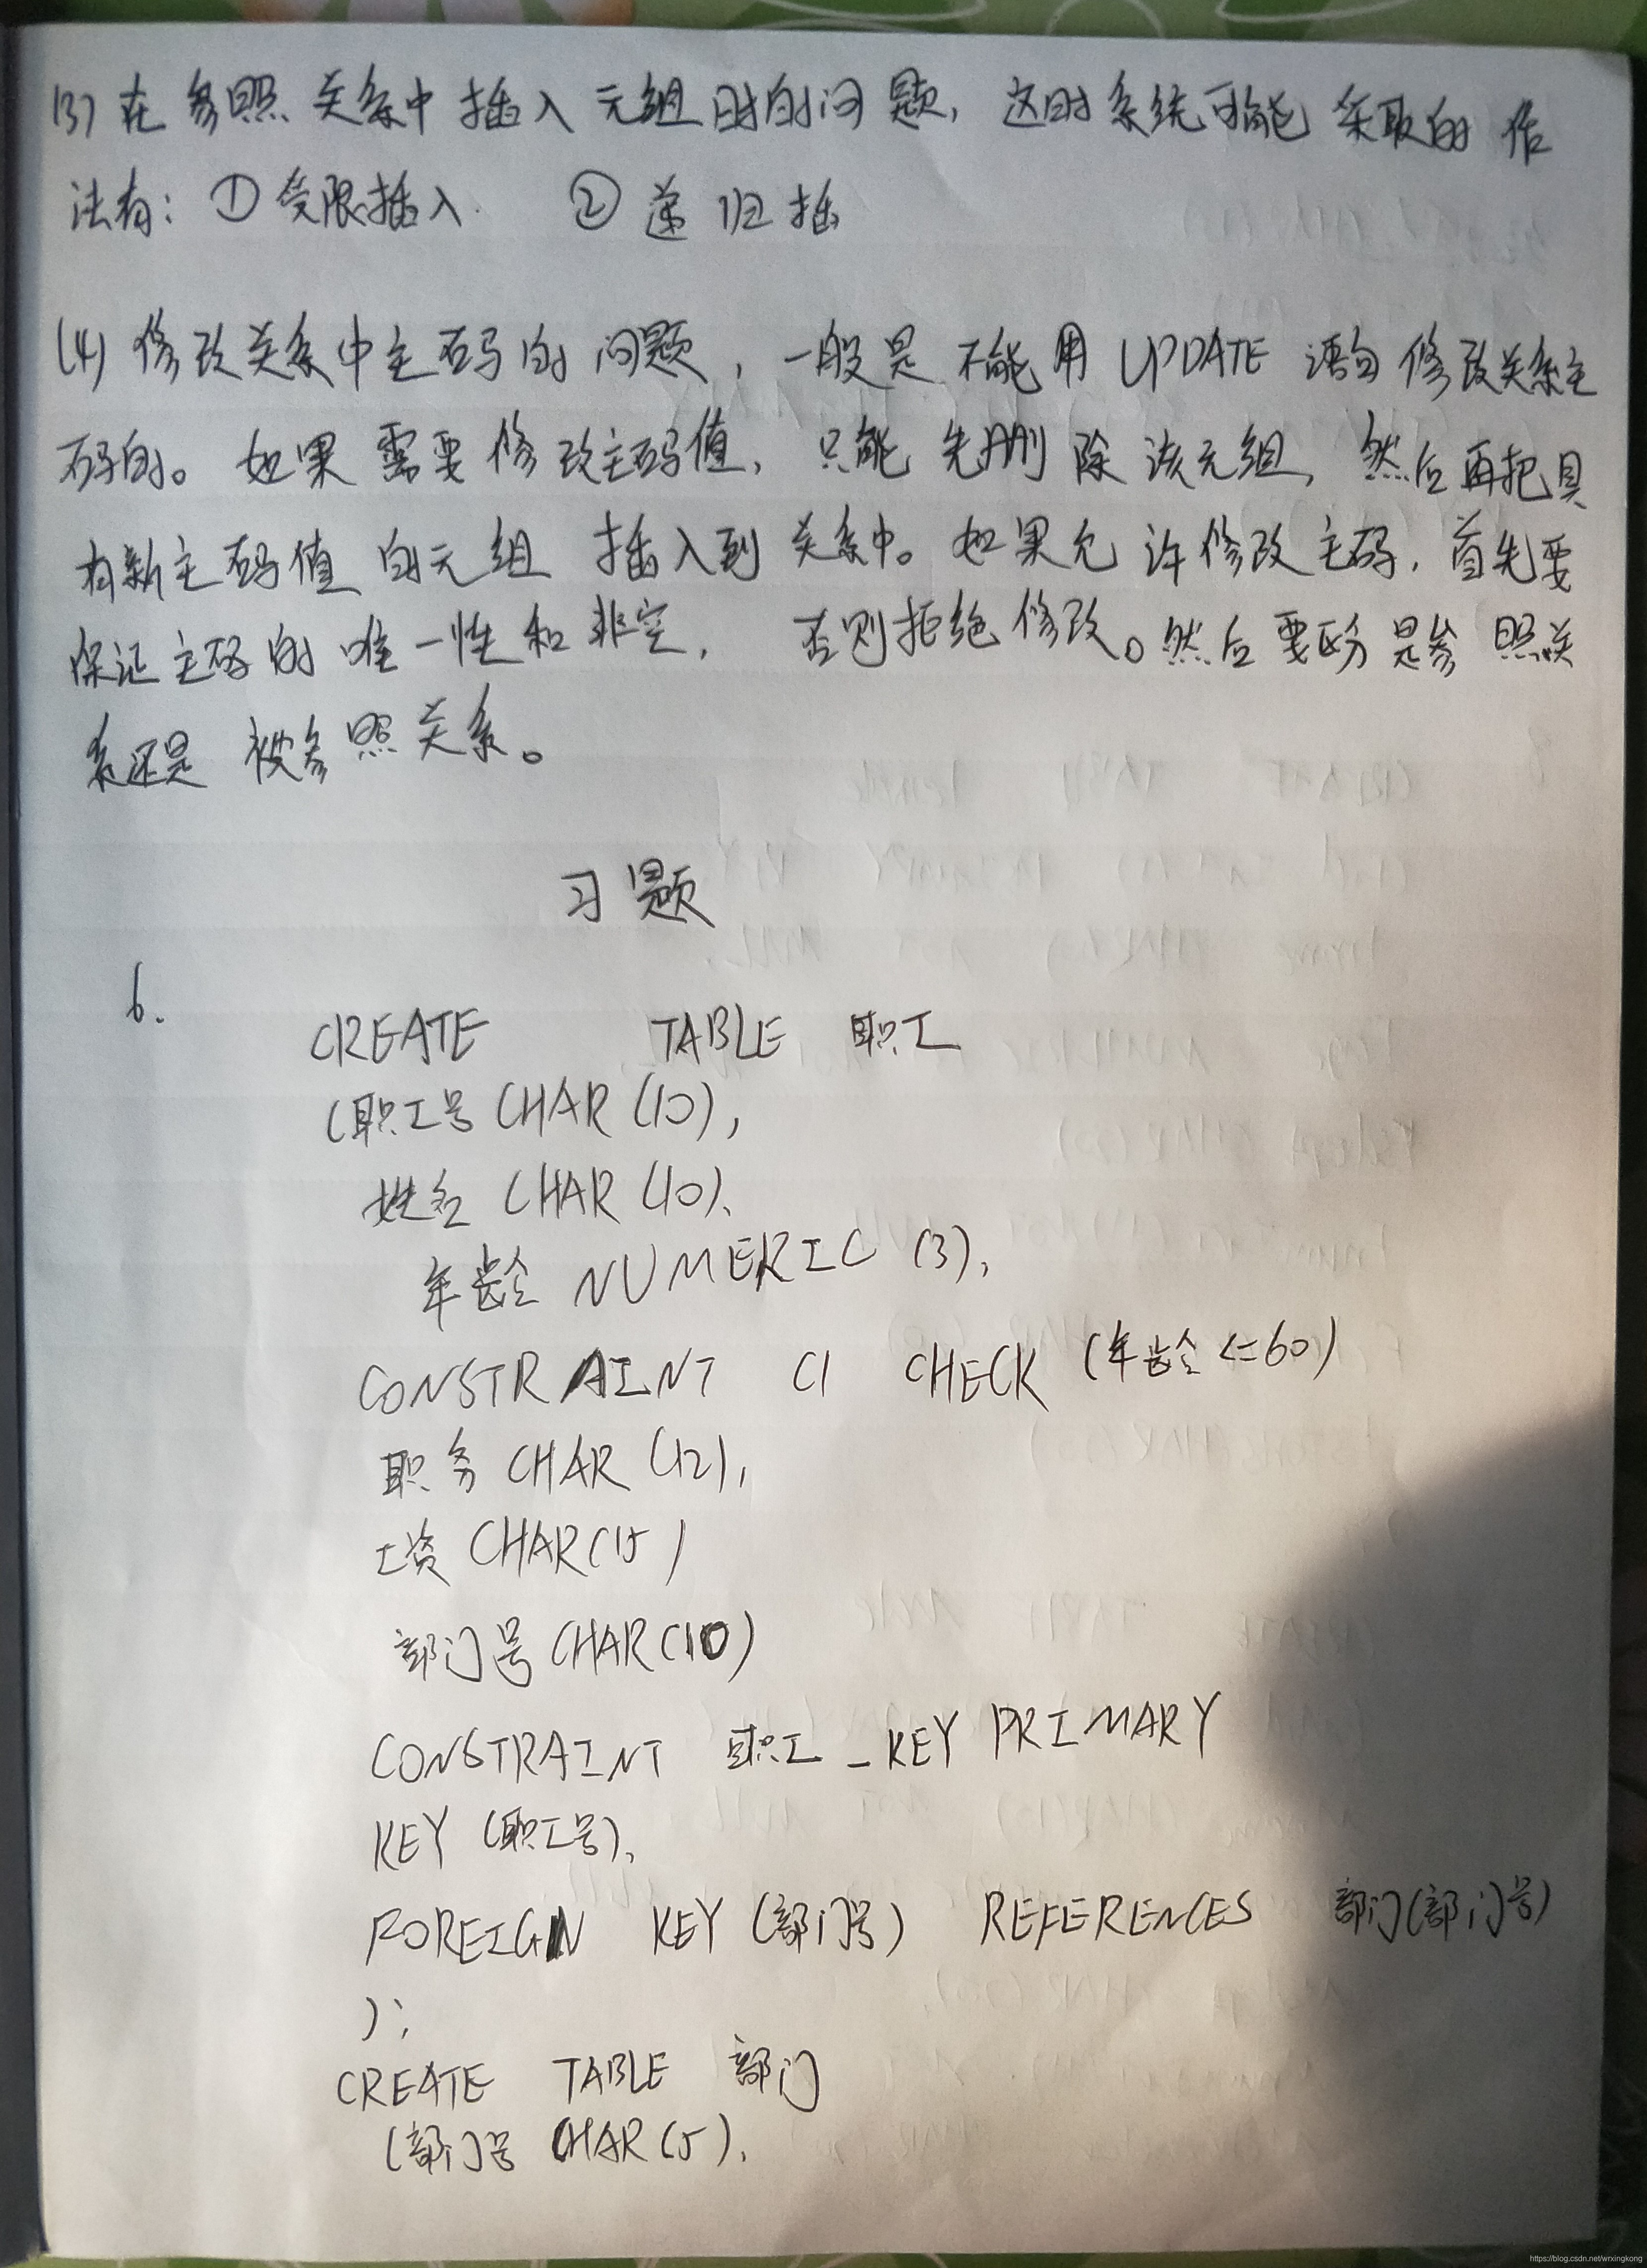 (3) 在参照关系中插入元组时的问题，这时系统可能采取的作
法有：① 受限插入 ② 递归插
(4) 修改关系中主码的问题，一般是不能用UPDATE语句修改关系主
码的。如果需要修改主码值，只能先删除该元组，然后再把具
有新主码值的元组插入到关系中。如果允许修改主码，首先要
保证主码的唯一性和非空，否则拒绝修改。然后要区分是参照关
系还是被参照关系。
习题
6.
CREATE TABLE 职工
(职工号 CHAR(10),
姓名 CHAR(10),
年龄 NUMERIC (3),
CONSTRAINT C1 CHECK (年龄<=60)
职务 CHAR(12),
工资 CHAR(15)
部门号 CHAR(10)
CONSTRAINT 职工_KEY PRIMARY
KEY (职工号),
FOREIGN KEY (部门号) REFERENCES 部门(部门号)
);
CREATE TABLE 部门
(部门号 CHAR(5),
https://blog.csdn.net/wrxingkong